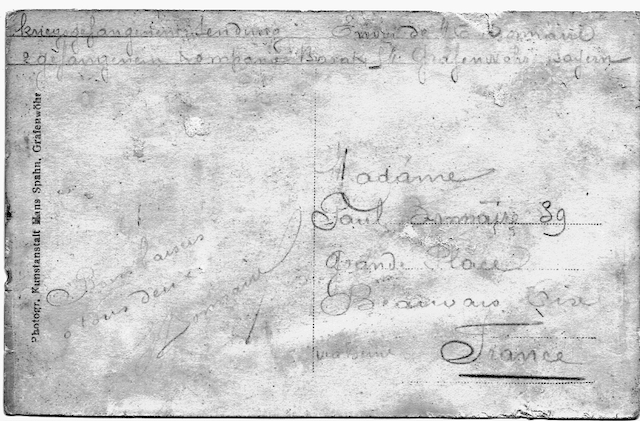 Kriegsgefangenensendung Envoi de
2 gefangenen Kompanie Barak Grafenwöhr Bayern
Photogr. Kunstanstalt Hans Spahn, Grafenwöhr
Bons baisers
à tous deux
Madame
Paul 39
Grande Place
Beauvais Oise
France